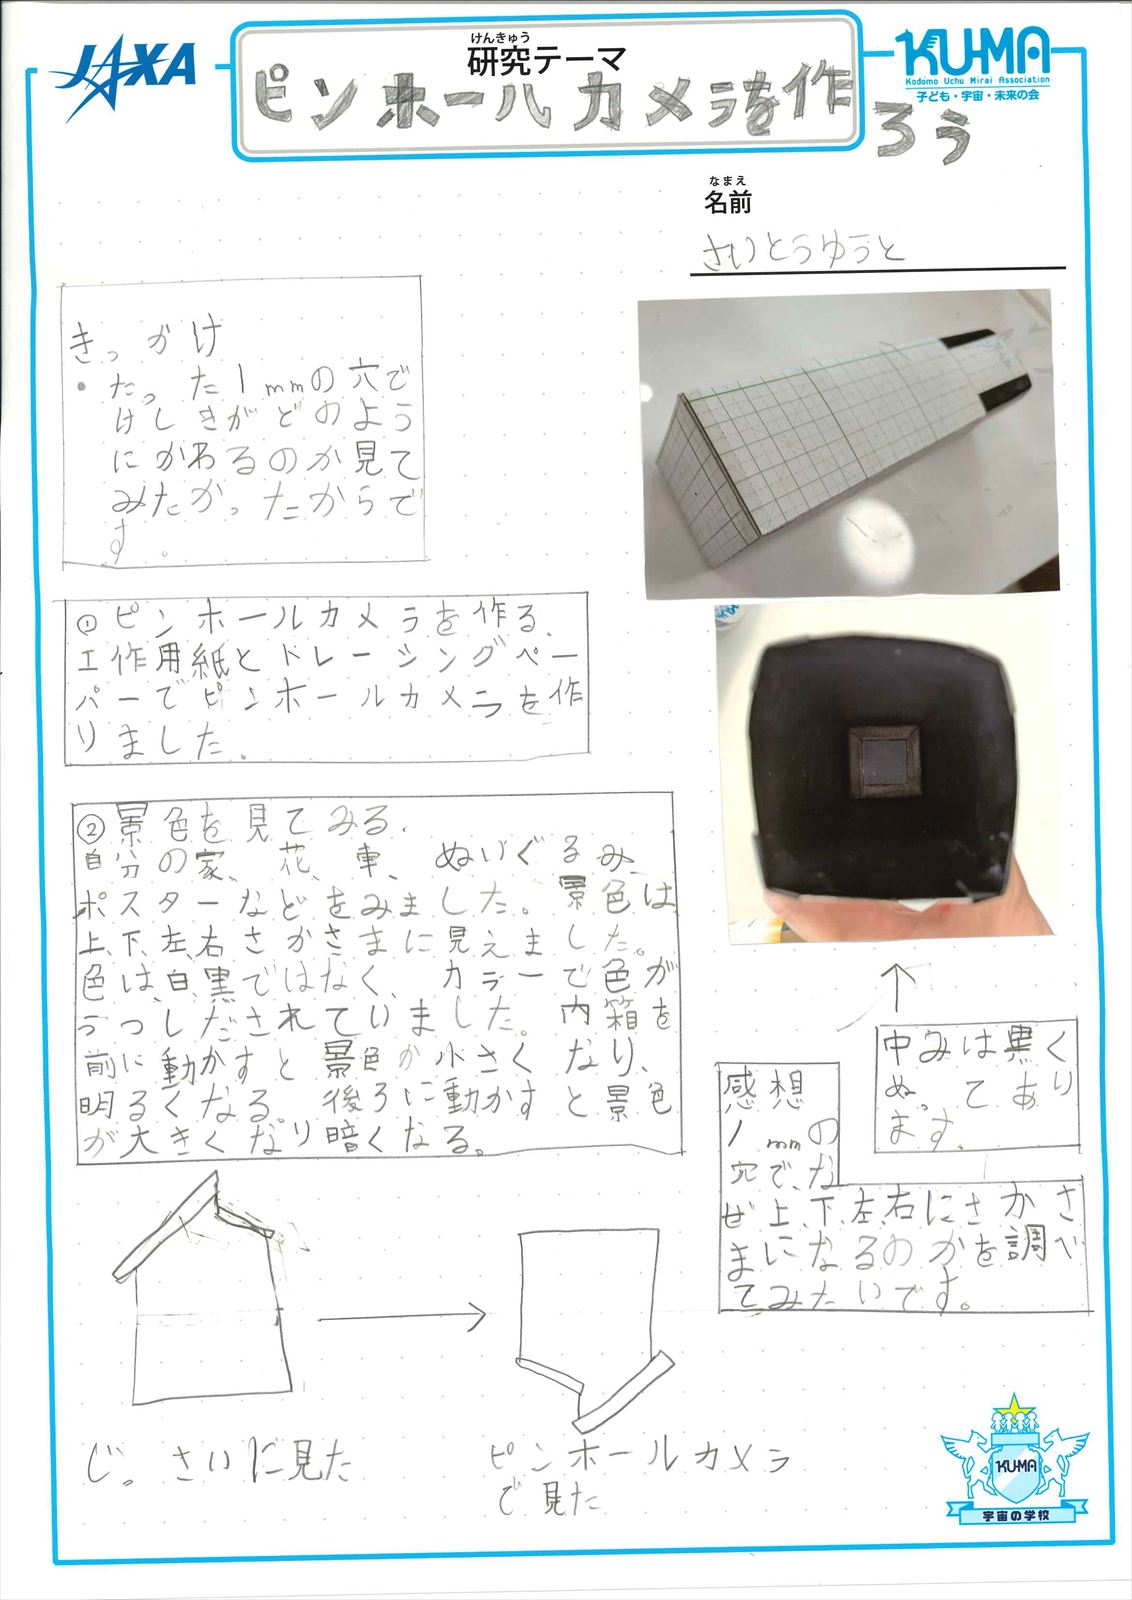 JAXA
けんきゅう
研究テーマ
ピンホールカメラを作ろう
KU-MA
Kodomo Uchu Mirai Association
子ども・宇宙・未来の会
なまえ
名前
さいとうゆうと
きっかけ
・たった1mmの穴で
けしきがどのよう
にかわるのか見て
みたかったからで
す。
①ピンホールカメラを作る.
工作用紙とトレーシングペー
パーでピンホールカメラを作
りました.
②景色を見てみる.
自分の家、花、車、ぬいぐるみ、
ポスターなどをみました。景色は
上、下、左、右さかさまに見えました。
色は、白、黒ではなく、カラーで色が
うつしだされていました。内箱を
前に動かすと景色が小さくなり、
明るくなる。後ろに動かすと景色
が大きくなり暗くなる。
中みは黒く
ぬってあり
ます.
感想
1mmの
穴で、な
ぜ上、下、左、右にさかさ
まになるのかを調べ
てみたいです。
じっさいに見た
ピンホールカメラ
で見た
KU-MA
宇宙の学校